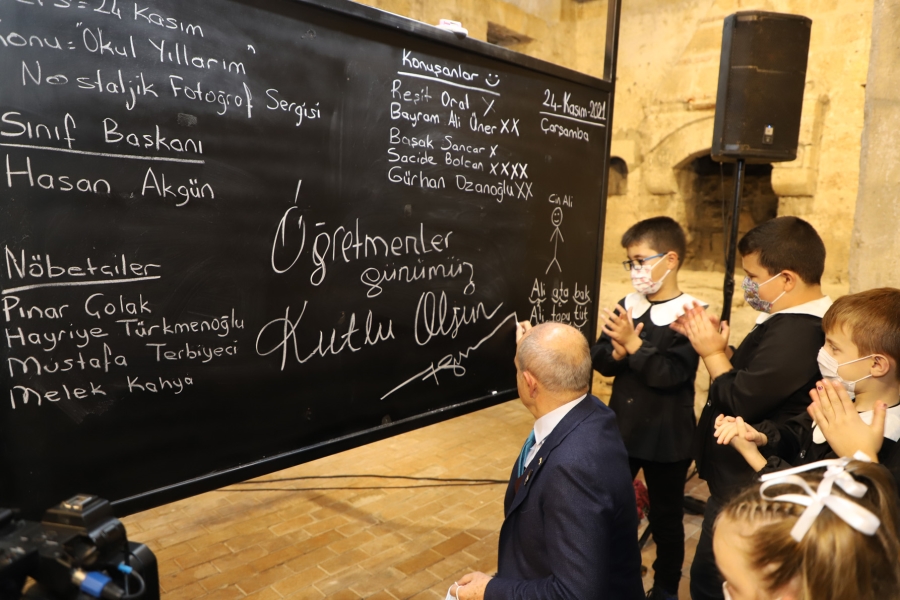 = 24 Kasım
Konu = "Okul Yıllarım"
Nostaljik Fotoğraf Sergisi
Sınıf Başkanı
Hasan Akgün
Nöbetçiler
Pınar Çolak
Hayriye Türkmenoğlu
Mustafa Terbiyeci
Melek Kahya
Öğretmenler
günümüz
Kutlu Olsun
Konuşanlar
Reşit Oral X
Bayram Ali Üner XX
Başak Sancar X
Sacide Bolcan XXXX
Gürhan Ozanoğlu XX
24-Kasım-2021
Çarşamba
Cin Ali
Ali ata bak
Ali topu tut